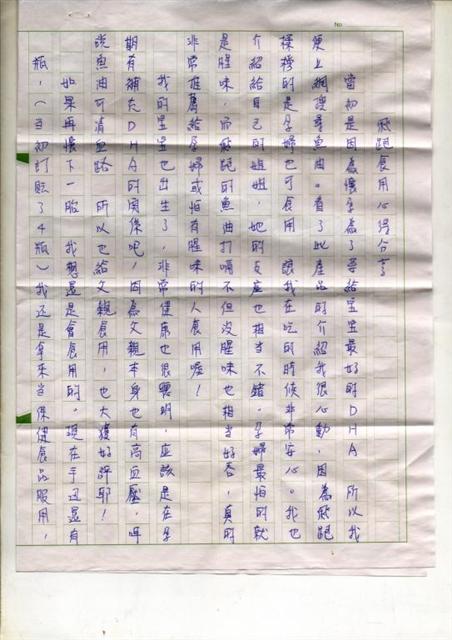 飛跑食用心得分享
當初是因為懷孕為了要給寶寶最好的DHA 所以我
便上網搜尋魚油。看了此產品的介紹我很心動，因為飛跑
標榜的是孕婦也可食用 讓我在吃的時候非常安心。我也
介紹給自己的姐姐，她的反應也相當不錯。孕婦最怕的就
是腥味，而飛跑的魚油打嗝不但沒腥味也相當好香，真的
非常推薦給孕婦或怕有腥味的人食用喔！
我的寶寶也出生了，非常健康也很聰明，應該是在孕
期有補充DHA的關係吧，因為父親本身也有高血壓，
說魚油可清血路 所以也給父親食用，也大獲好評耶！
如果再懷下一胎 我想還是會食用的。現在手邊還有
瓶，（當初訂購了4瓶）我還是拿來當保健食品服用，